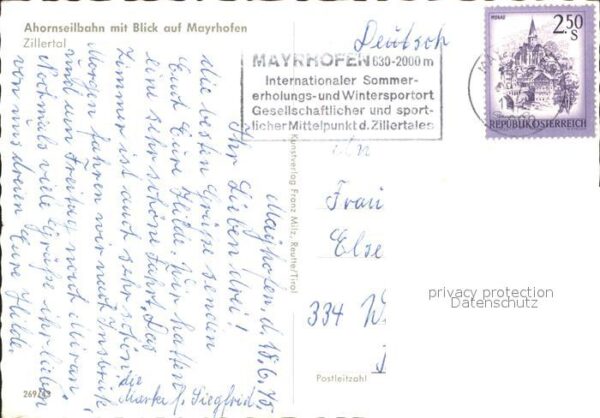 Ahornseilbahn mit Blick auf Mayrhofen
Zillertal
Deutsch
MAYRHOFEN 630-2000 m
Internationaler Sommer-
erholungs- und Wintersportort
Gesellschaftlicher und sport-
licher Mittelpunkt d. Zillertales
MURAU
2.50
S
REPUBLIK ÖSTERREICH
An
Frau
Else
334 W
Postleitzahl
privacy protection
Datenschutz
Kunstverlag Franz Milz, Reutte/Tirol
Mayrhofen, d. 18.6.76.
Ihr Lieben drei!
Die besten Grüße senden
Euch Eure Hilde. Wir hatten
eine sehr schöne Fahrt. Das
Zimmer ist auch sehr schön.
Morgen fahren wir nach Innsbruck,
und am Freitag nach Meran.
Nochmals viele Grüße ihr Lieben
von uns dreien Eure Hilde
die
Marke f. Siegfried.
269/43